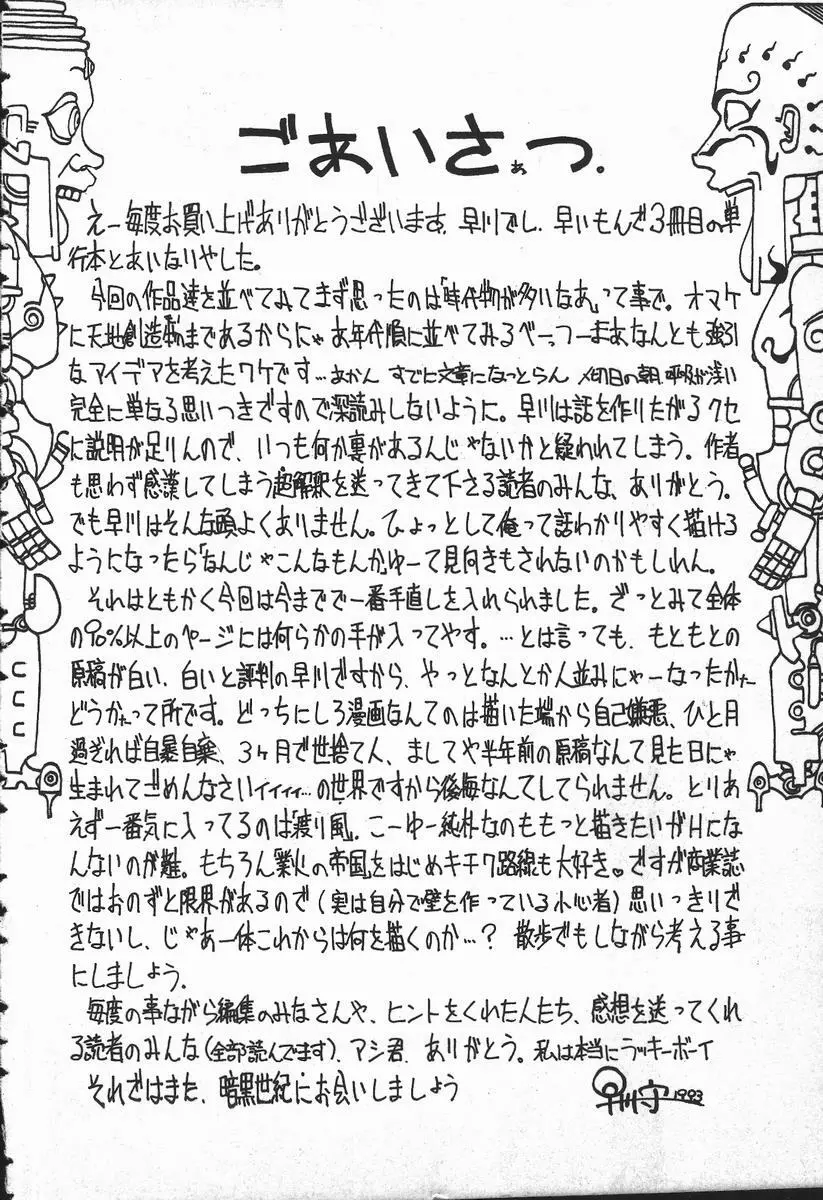 ごあいさぁつ.
えー毎度お買い上げありがとうございます。早川でし。早いもんで3冊目の単
行本とあいなりやした。
今回の作品達を並べてみてまず思ったのは「時代物が多いなあ」って事で。オマケ
に天地創造まであるからにゃお年代順に並べてみるべーっつーまあなんとも強引
なアイデアを考えたワケです…あかん すでに文章になっとらん 〆切日の朝 眠りが浅い
完全に単なる思いつきですので深読みしないように。早川は話を作りたがるクセ
に説明が足りんので、いつも何か裏があるんじゃないかと疑われてしまう。作者
も思わず感謹してしまう超解釈を送ってきて下さる読者のみんな、ありがとう。
でも早川はそんな頭よくありません。ひょっとして俺って話わかりやすく描ける
ようになったら「なんじゃこんなもんか」ゆーて見向きもされないのかもしれん。
それはともかく今回は今までで一番手直しを入れられました。ざっとみて全体
の90%以上のページには何らかの手が入ってやす。…とは言っても、もともとの
原稿が白い、白いと評判の早川ですから、やっとなんとか人並みにゃーなったかなー
どうかなって所です。どっちにしろ漫画なんてのは描いた端から自己嫌悪、ひと月
過ぎれば自暴自棄、3ヶ月で世捨て人、ましてや半年前の原稿なんて見た日にゃ
生まれてごめんなさいィィィィ…の世界ですから後悔なんてしてられません。とりあ
えず一番気に入ってるのは「渡り風」。こーゆー純朴なのももっと描きたいがHにな
んないのが難。もちろん「業火の帝国」をはじめキチク路線も大好き♥ですが商業誌
ではおのずと限界があるので(実は自分で壁を作っている小心者)思いっきりで
きないし、じゃあ一体これからは何を描くのか…? 散歩でもしながら考える事
にしましょう。
毎度の事ながら編集のみなさんや、ヒントをくれた人たち、感想を送ってくれ
る読者のみんな(全部読んでます)、アシ君、ありがとう。私は本当にラッキーボーイ
それではまた、暗黒世紀にお会いしましょう
早川守 1993